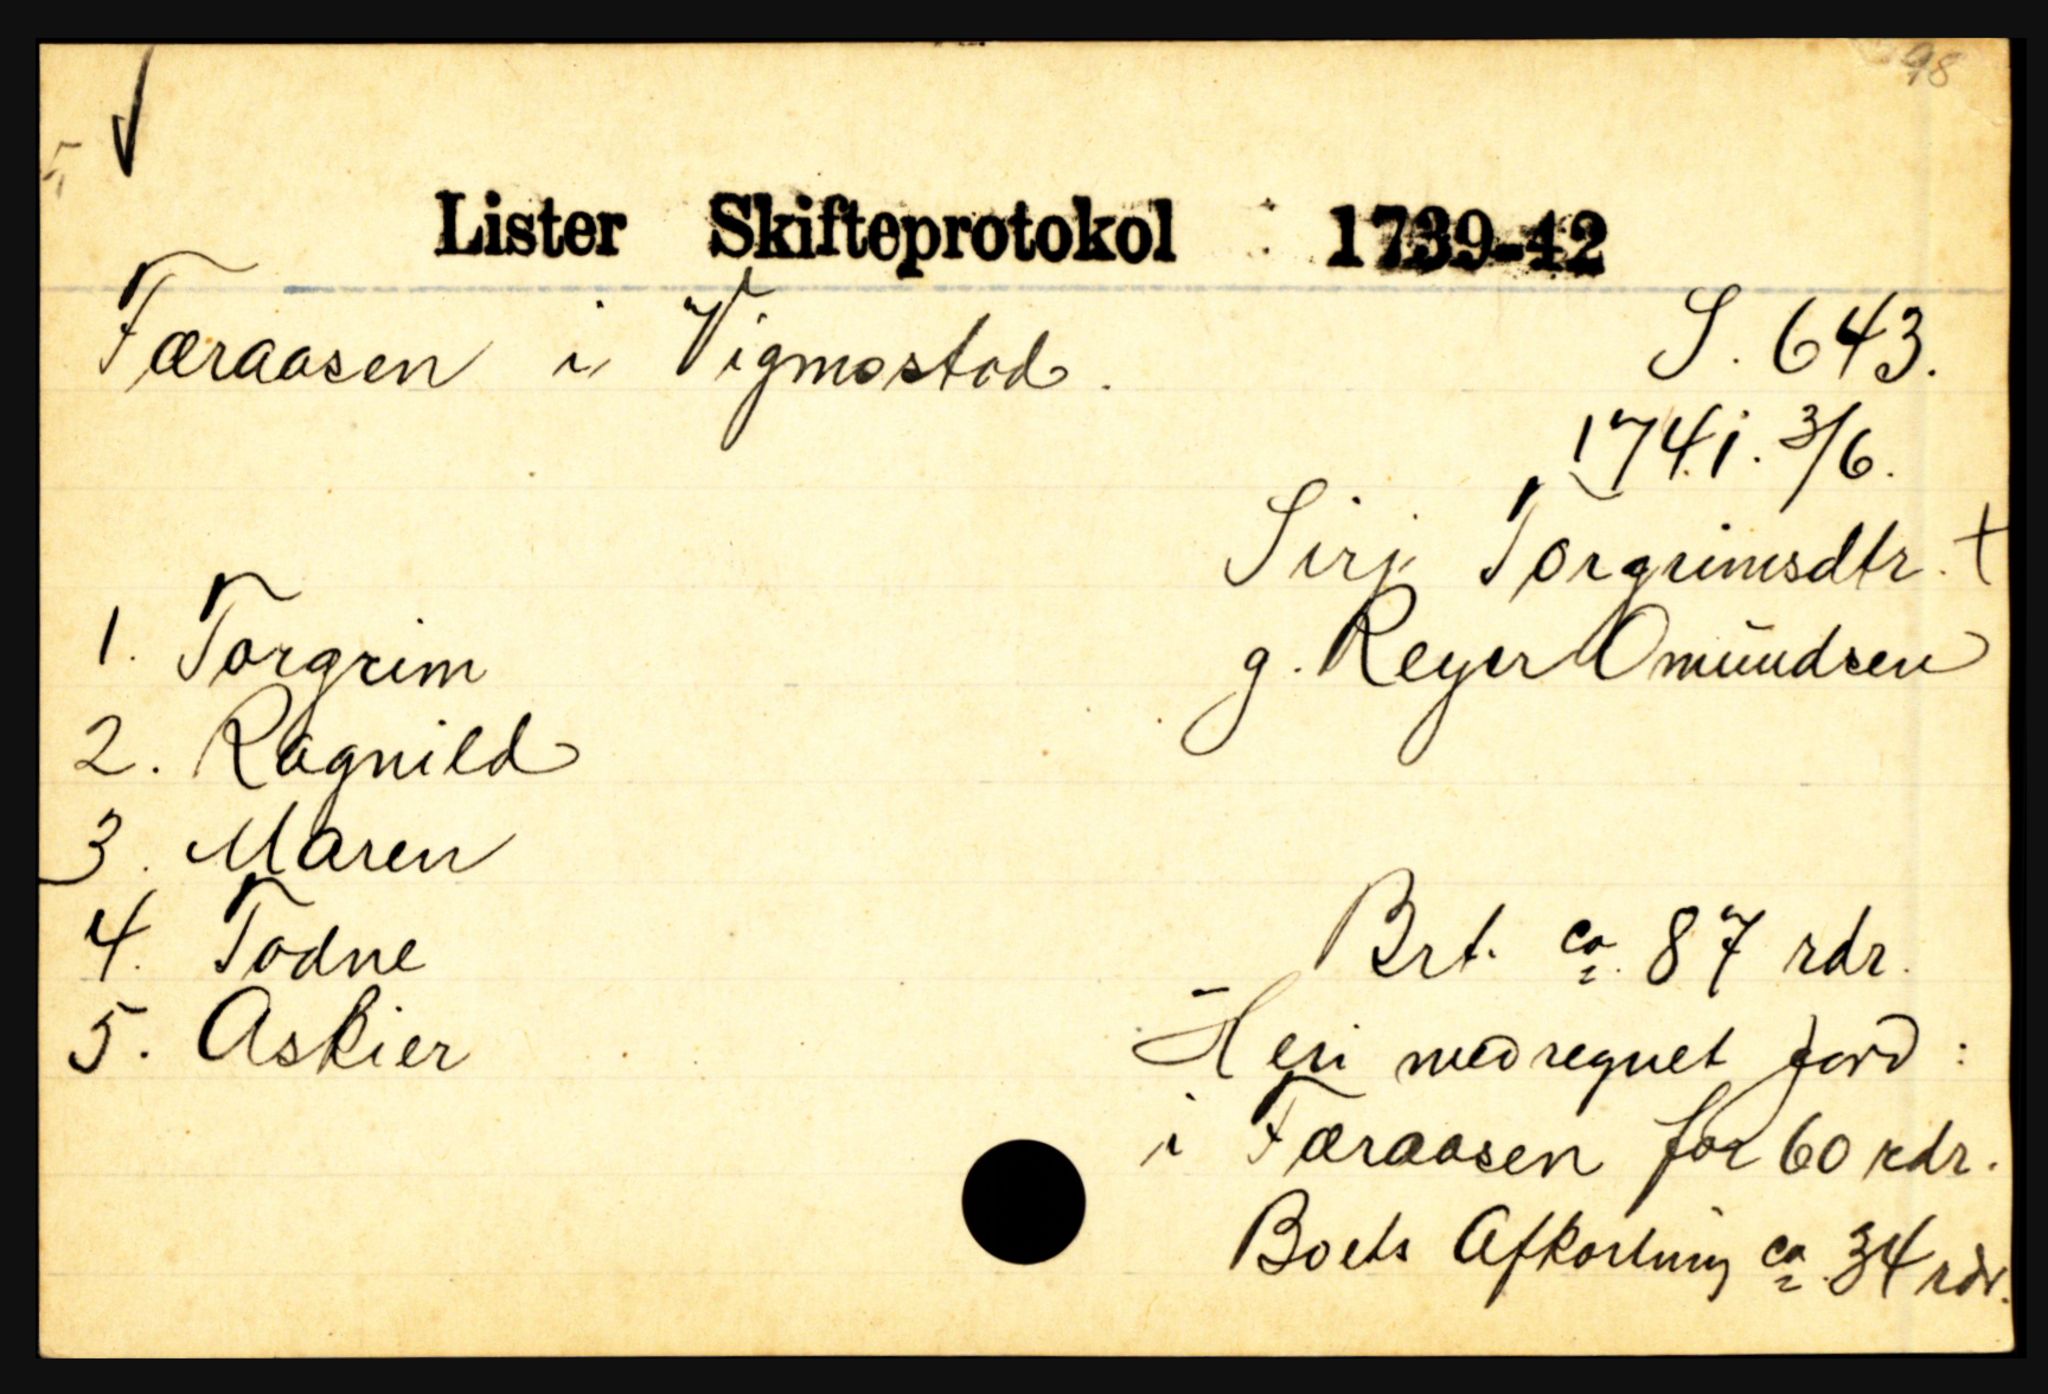 98
Lister Skifteprotokol 1739-42
Færaasen i Vigmostad.
S. 643.
1741. 3/6.
Siri Torgrimsdtr. +
g. Reyer Omundsen
1. Torgrim
2. Ragnild
3. Maren
4. Todne
5. Askier
Brt. ca. 87 rdr.
Heri medregnet Jord:
i Færaasen for 60 rdr.
Boets Afkortning ca. 34 rdr.